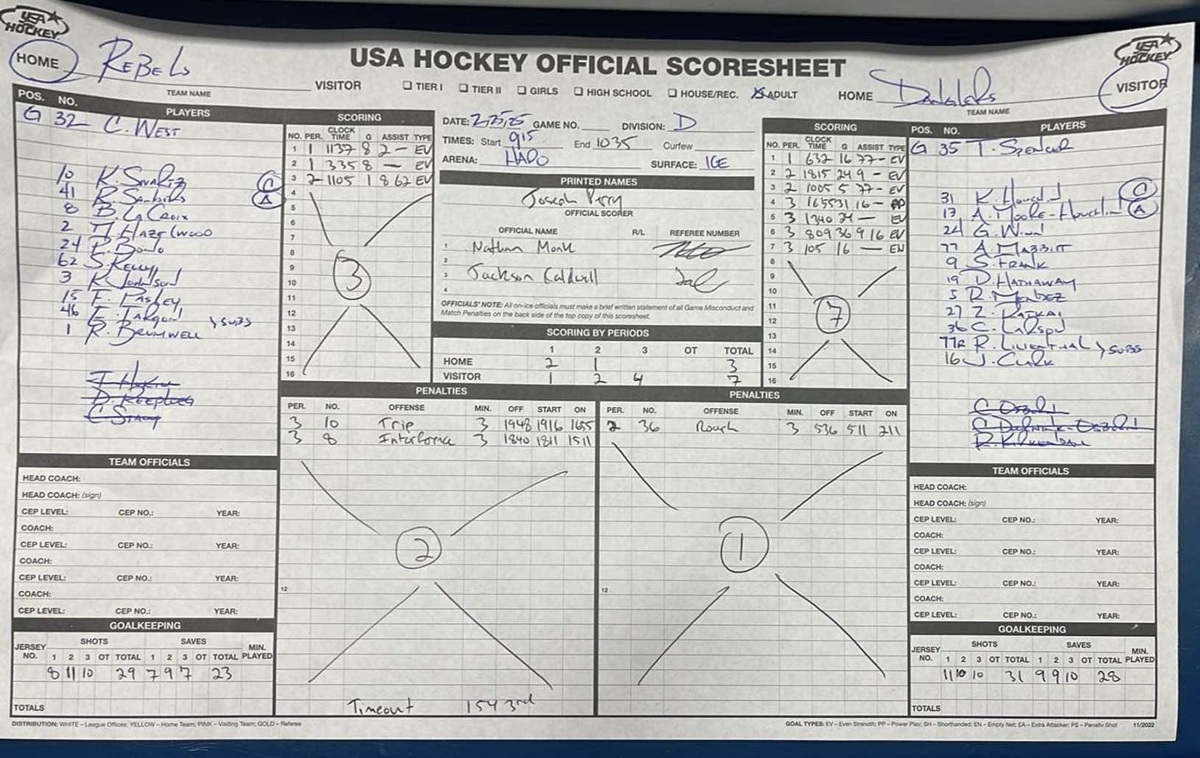 USA HOCKEY OFFICIAL SCORESHEET
USA HOCKEY
HOME REBELS
TEAM NAME
VISITOR
☐ TIER I ☐ TIER II ☐ GIRLS ☐ HIGH SCHOOL ☐ HOUSE/REC. ☒ ADULT
HOME
TEAM NAME
VISITOR
USA HOCKEY
POS. NO. PLAYERS
G 32 C. WEST
10
41
8 B. LaCroix
2 HAZELWOOD
24
62 S. Kelly
3 Johnson
15
46
1 R. BRUMWELL } SUBS
C
A
SCORING
NO. PER. CLOCK TIME G ASSIST TYPE
1 1 1137 8 2 — EV
2 1 335 8 — EV
3 2 1105 1 8 62 EV
4
5
6
7
8
9
10
11
12
13
14
15
16
3
DATE: 2,25,25 GAME NO. DIVISION: D
TIMES: Start 915 End 1035 Curfew
ARENA: HAPO SURFACE: ICE
PRINTED NAMES
Joseph Perry
OFFICIAL SCORER
OFFICIAL NAME R/L REFEREE NUMBER
1 Nathan Monk
2
3 Jackson Caldwell
4
OFFICIALS' NOTE: All on-ice officials must make a brief written statement of all Game Misconduct and
Match Penalties on the back side of the top copy of this scoresheet.
SCORING BY PERIODS
1 2 3 OT TOTAL
HOME 2 1 3
VISITOR 1 2 4 7
SCORING
NO. PER. CLOCK TIME G ASSIST TYPE
1 1 632 16 77 — EV
2 2 1815 24 9 — EV
3 2 1005 5 77 — EV
4 3 1655 31 16 — PP
5 3 1340 24 — EV
6 3 809 36 9 16 EV
7 3 105 16 — EN
8
9
10
11
12
13
14
15
16
7
POS. NO. PLAYERS
G 35 T. SPENCER
31 K.
17 A. MOORE-
24 G. WINN
77 A. MABBIT
9 S. FRANK
19 D. HATHAWAY
5 R. MENDEZ
27 Z.
36 C.
77R R. LILIENTHAL } SUBS
16 J. Clark
C
A
PENALTIES
PER. NO. OFFENSE MIN. OFF START ON
3 10 Trip 3 1948 1916 1655
3 8 Interference 3 1840 1811 1511
12
2
Timeout 154 3rd
PENALTIES
PER. NO. OFFENSE MIN. OFF START ON
2 36 Rough 3 536 511 211
12
1
TEAM OFFICIALS
HEAD COACH:
HEAD COACH: (sign)
CEP LEVEL: CEP NO.: YEAR:
COACH:
CEP LEVEL: CEP NO.: YEAR:
COACH:
CEP LEVEL: CEP NO.: YEAR:
COACH:
CEP LEVEL: CEP NO.: YEAR:
GOALKEEPING
JERSEY NO. SHOTS SAVES MIN. PLAYED
1 2 3 OT TOTAL 1 2 3 OT TOTAL
8 11 10 29 7 9 7 23
TOTALS
TEAM OFFICIALS
HEAD COACH:
HEAD COACH: (sign)
CEP LEVEL: CEP NO.: YEAR:
COACH:
CEP LEVEL: CEP NO.: YEAR:
COACH:
CEP LEVEL: CEP NO.: YEAR:
COACH:
CEP LEVEL: CEP NO.: YEAR:
GOALKEEPING
JERSEY NO. SHOTS SAVES MIN. PLAYED
1 2 3 OT TOTAL 1 2 3 OT TOTAL
11 10 10 31 9 9 10 28
TOTALS
DISTRIBUTION: WHITE – League Offices; YELLOW – Home Team; PINK – Visiting Team; GOLD – Referee
GOAL TYPES: EV – Even Strength; PP – Power Play; SH – Shorthanded; EN – Empty Net; EA – Extra Attacker; PS – Penalty Shot 11/2022